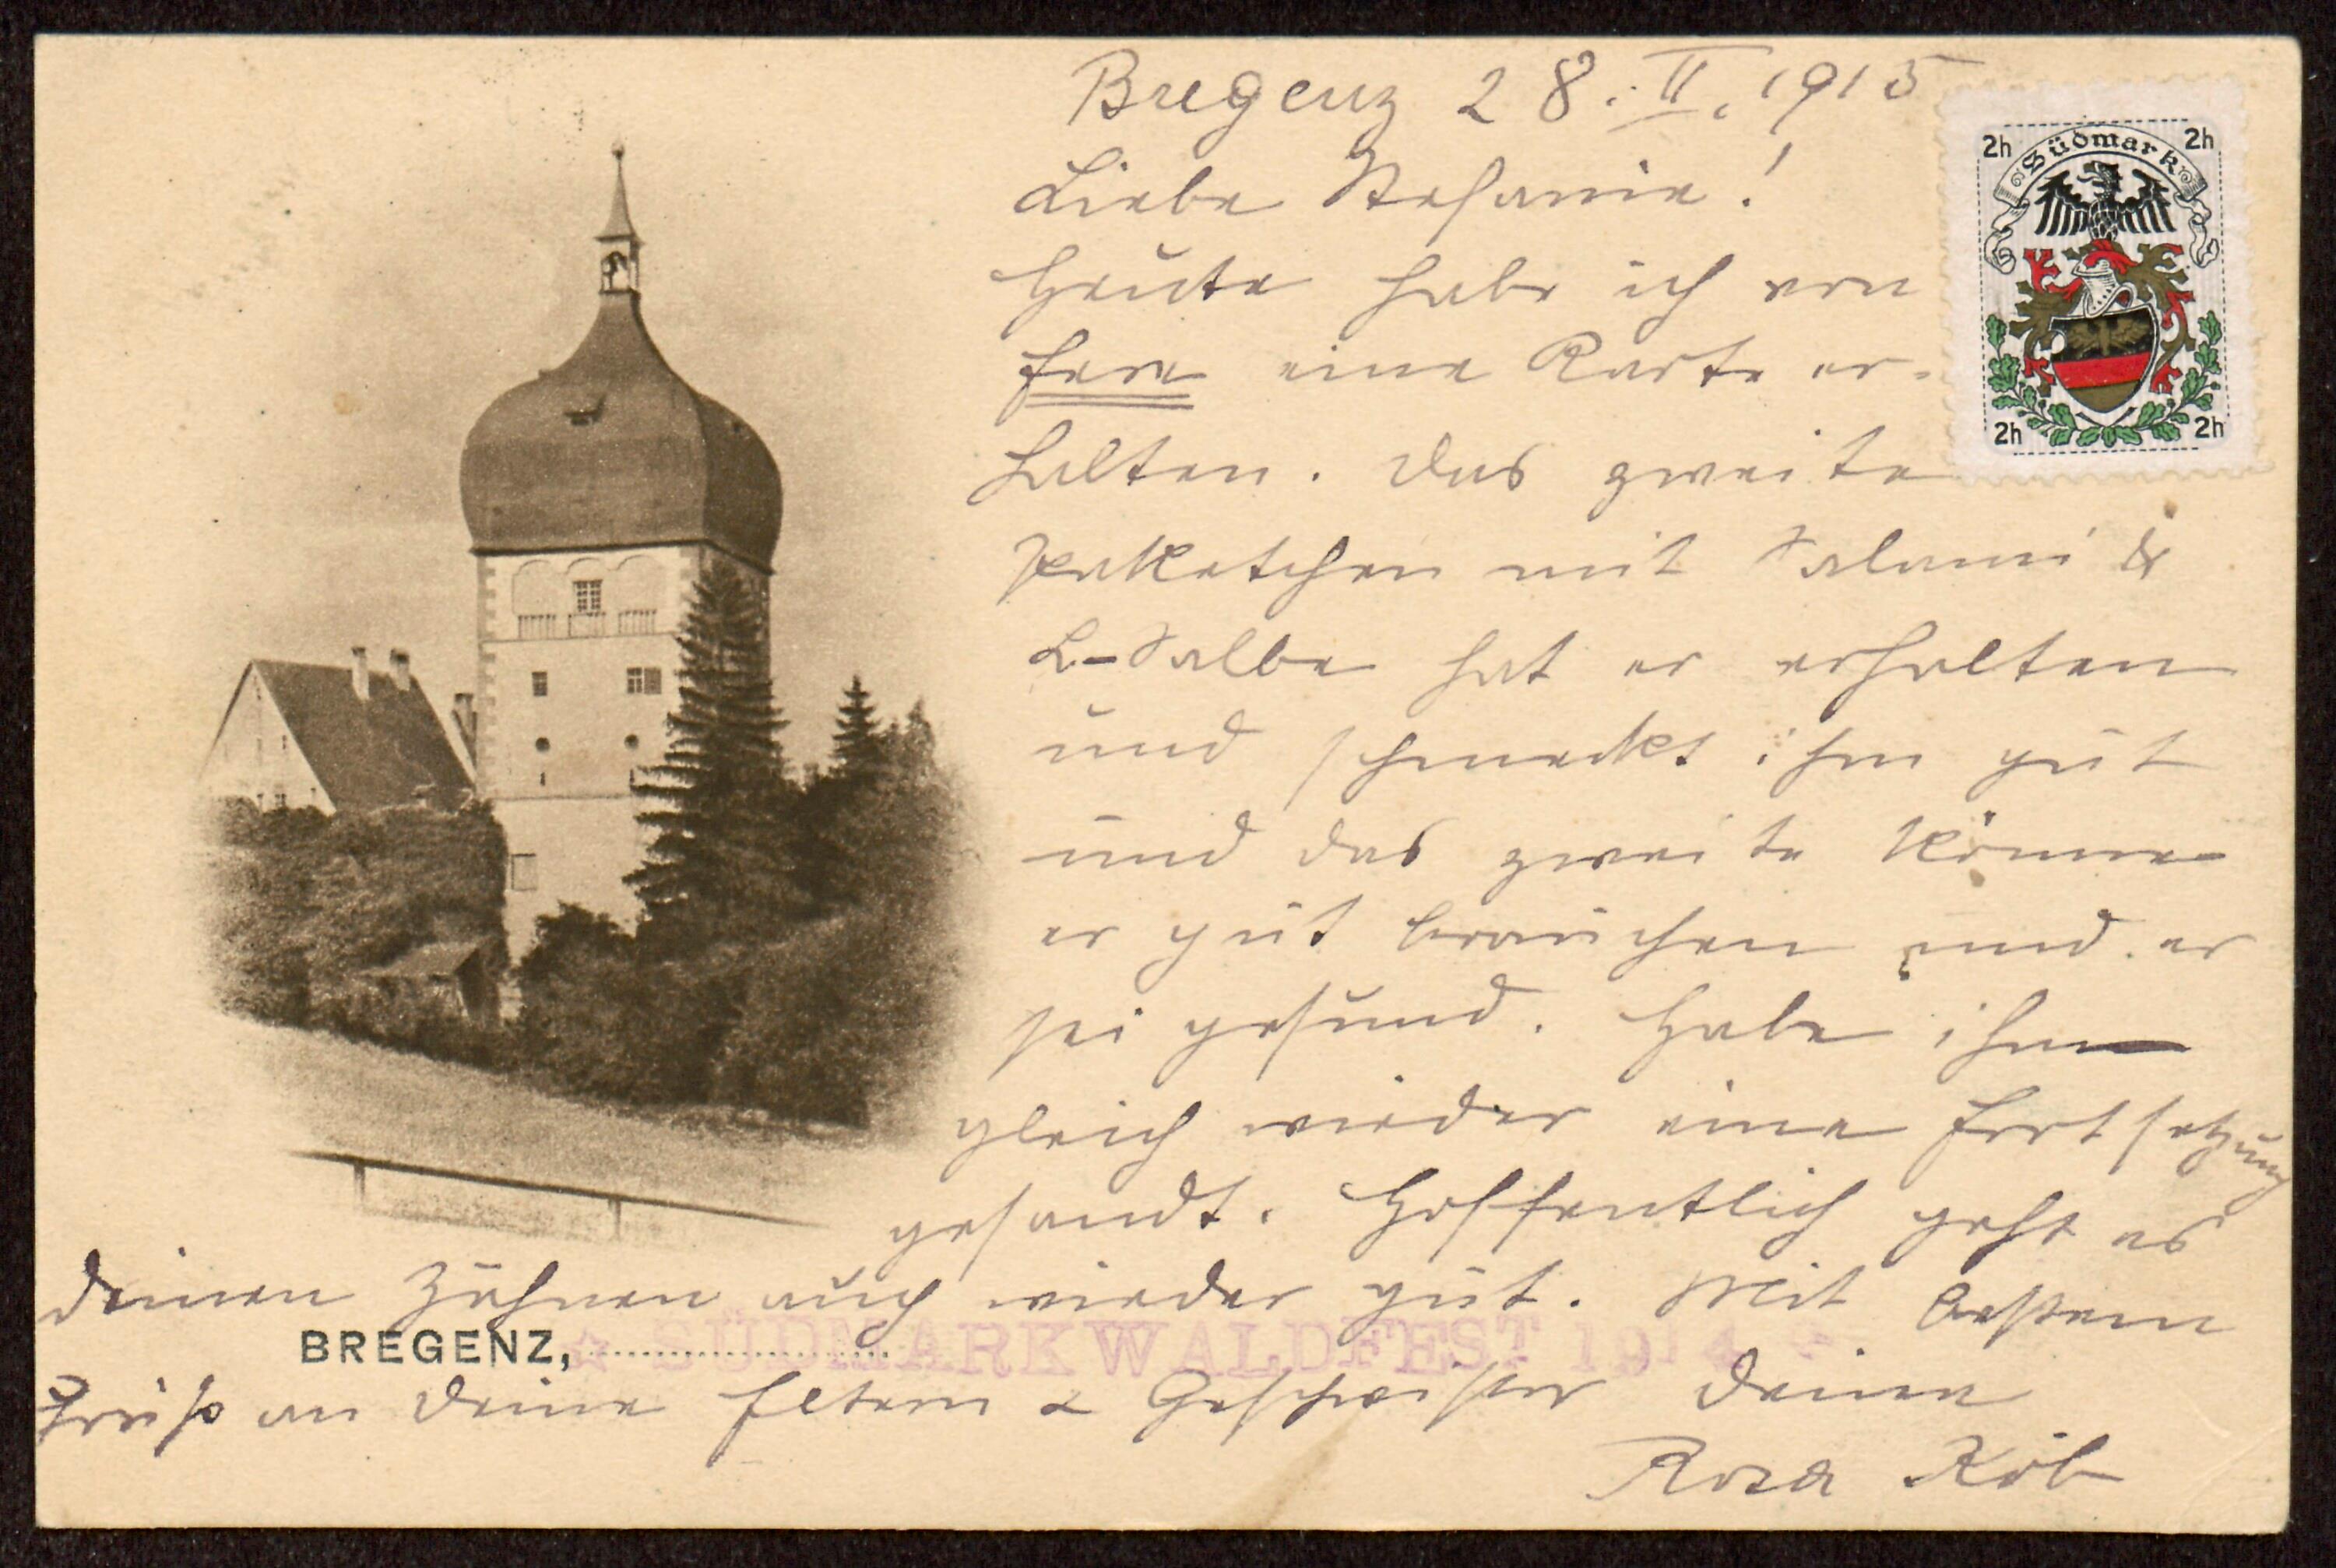 Bregenz 28. II. 1915
Liebe Stefanie!
Heute habe ich von
eine Karte er-
halten. Das zweite
Paketchen mit Salami &
L-Salbe hat er erhalten
und schmeckt ihm gut
und das zweite könne
er gut brauchen und er
sei gesund. Habe ihm
gleich wieder eine Fortsetzung
gesandt. Hoffentlich geht es
deinen Zähnen auch wieder gut. Mit bestem
BREGENZ,
☆ SÜDMARKWALDFEST 1914
Gruß an deine Eltern & Geschwister deine
Rosa Köb
2h Südmark 2h
2h 2h